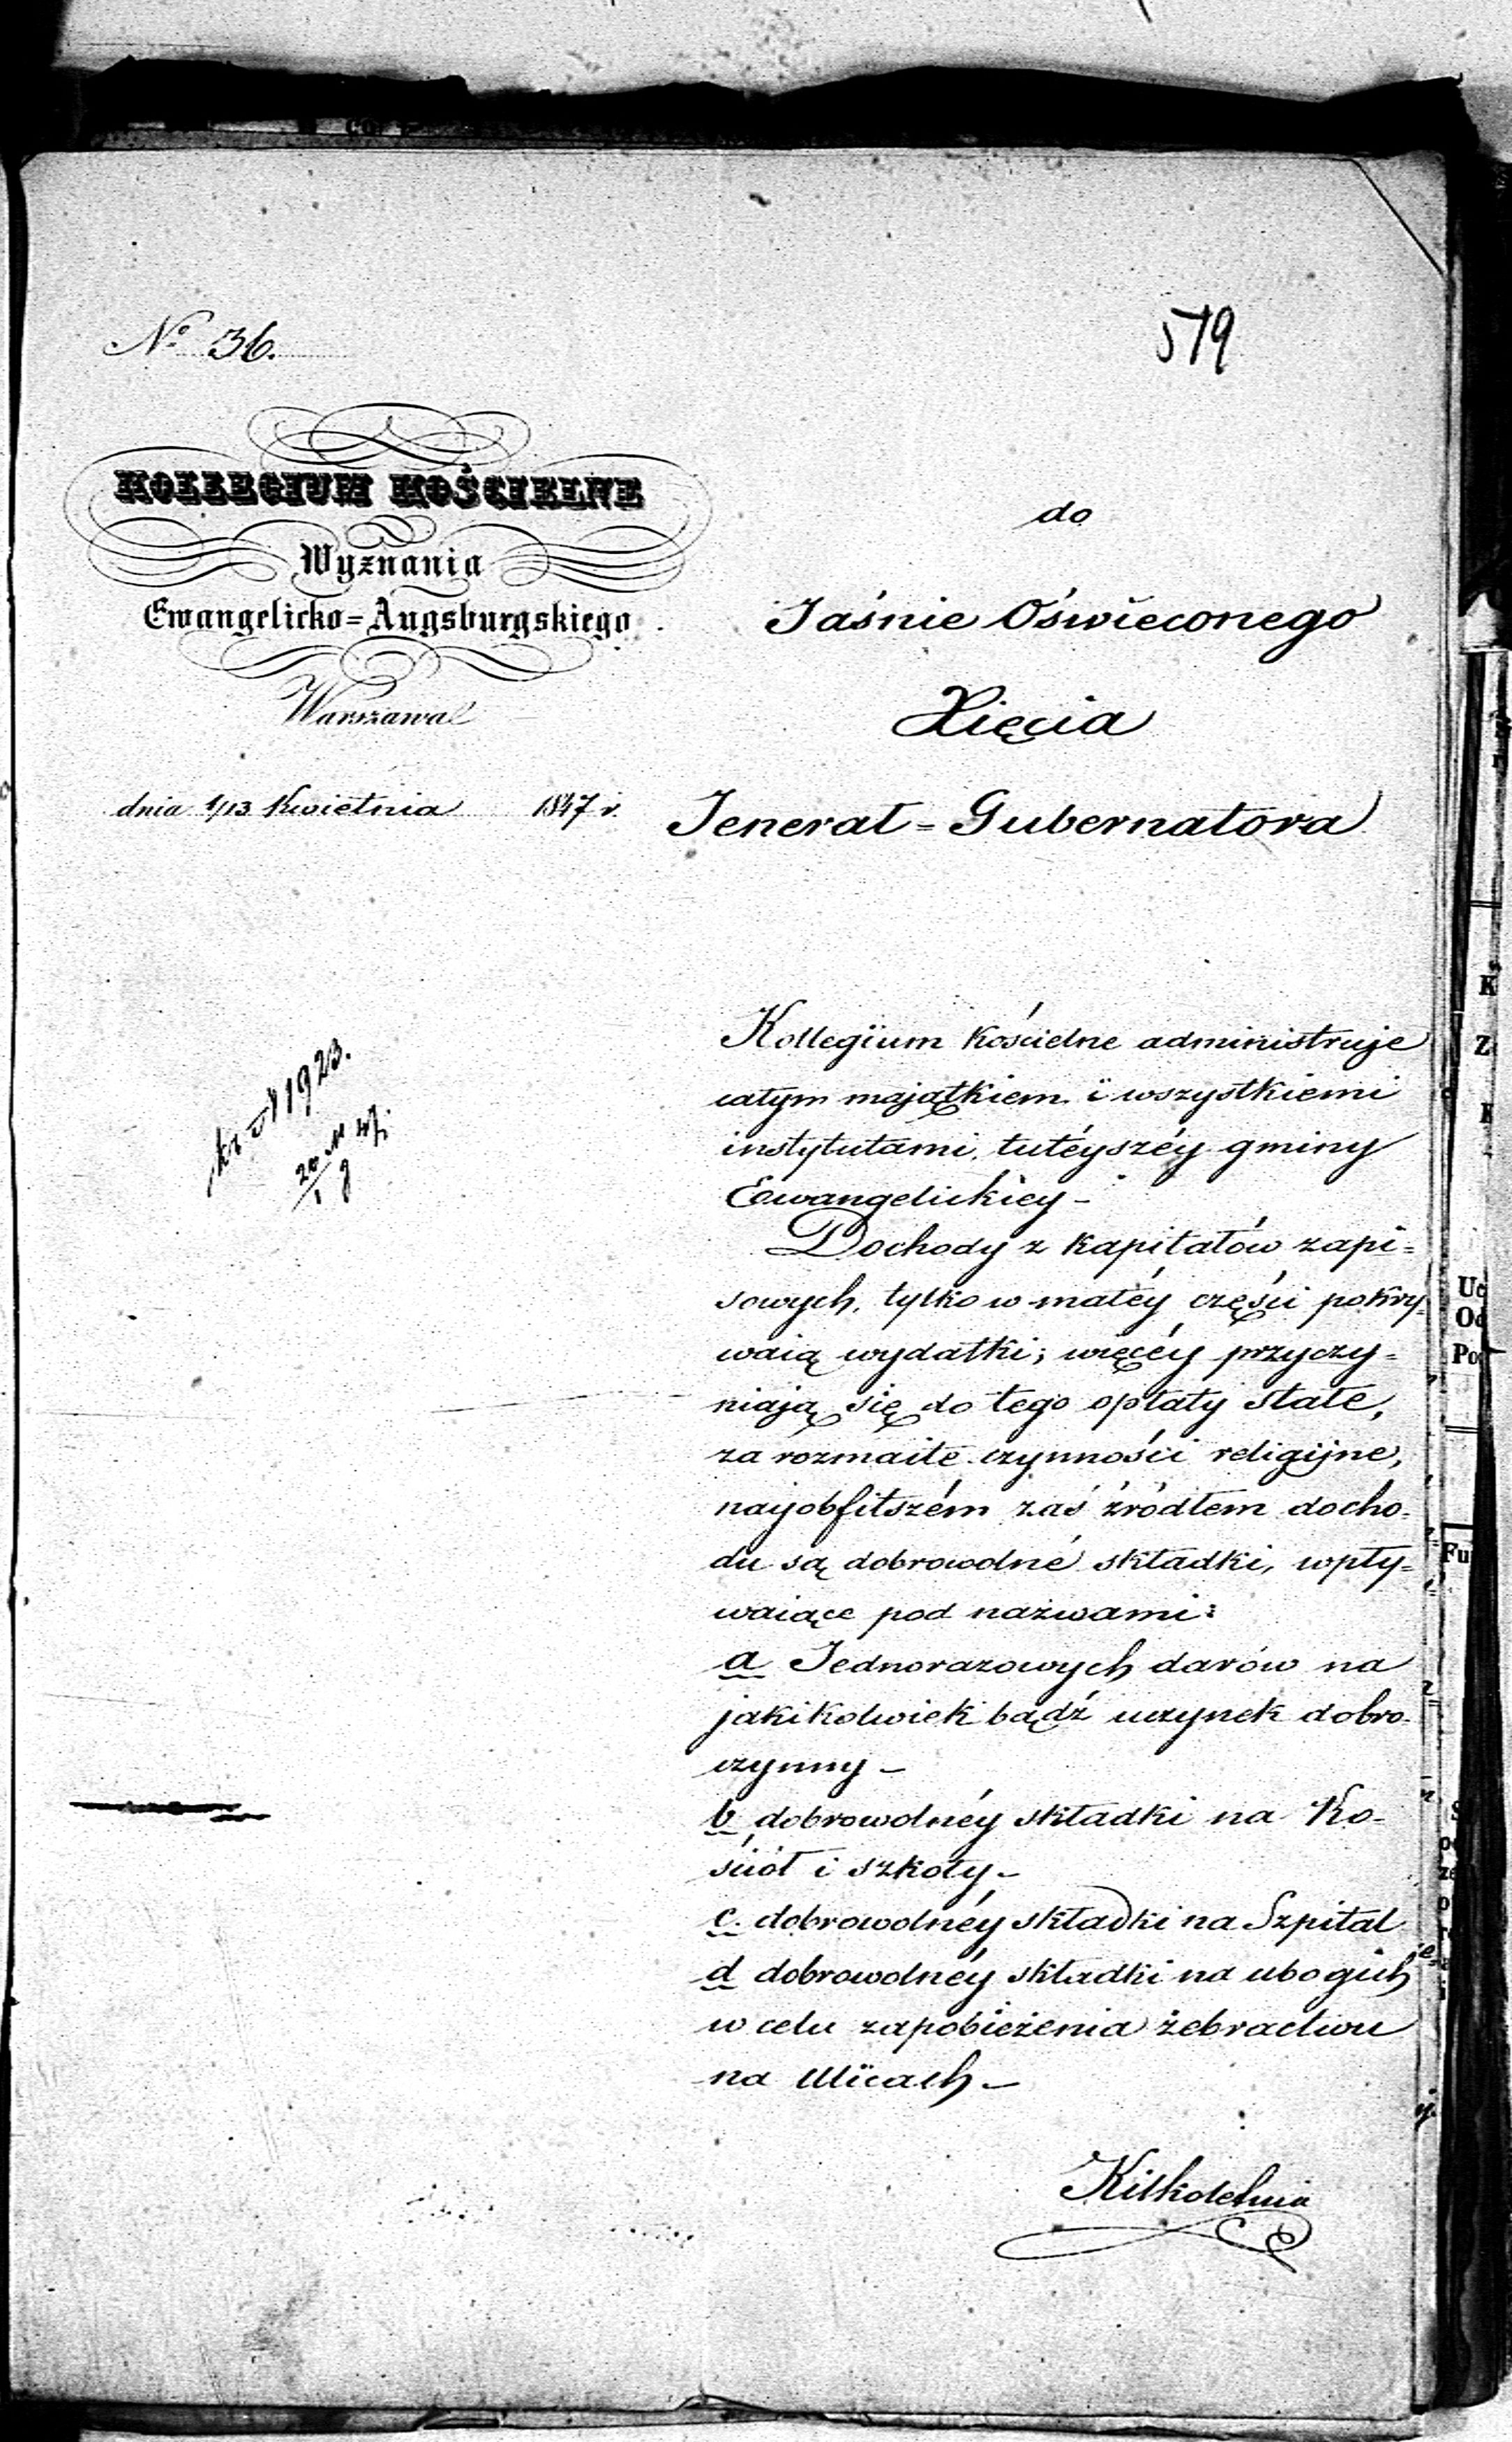 № 36.
579
KOLLEGIUM KOŚCIELNE
Wyznania
Ewangelicko=Augsburgskiego
Warszawa
dnia 1/13 Kwietnia 1847 r.
do
Jaśnie Oświeconego
Xięcia
Jenerał=Gubernatora
1923.
Kollegium Kościelne administruje
całym majątkiem i wszystkiemi
instytutami, tutéyszéy gminy
Ewangelickiey-
Dochody z kapitałów zapi=
sowych, tylko w małéy części pokry-
waią wydatki; więcéy przyczy=
niają się do tego opłaty stałe,
za rozmaite czynności religijne,
nayobfitszém zaś źródłem docho-
du są dobrowolne składki, wpły=
waiące pod nazwami:
a Jednorazowych darów na
jakikolwiek bądź uczynek dobro-
czynny-
b dobrowolnéy składki na Ko-
ściół i szkoły-
c. dobrowolnéy składki na Szpital
d dobrowolnéy składki na ubogich
w celu zapobieżenia żebractwu
na ulicach-
Kilkoletnia
K
Z
Uc
Od
Po
Fu